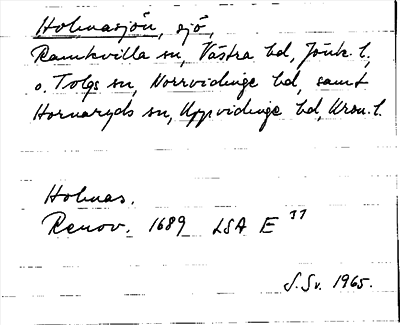 Holmasjön, sjö,
Ramkvilla sn, Västra hd, Jönk. l.,
o. Tolgs sn, Norrvidinge hd, samt
Hornaryds sn, Uppvidinge hd, Kron. l.
Holmas.
Renov. 1689 LSA E 37
S. Sv. 1965.